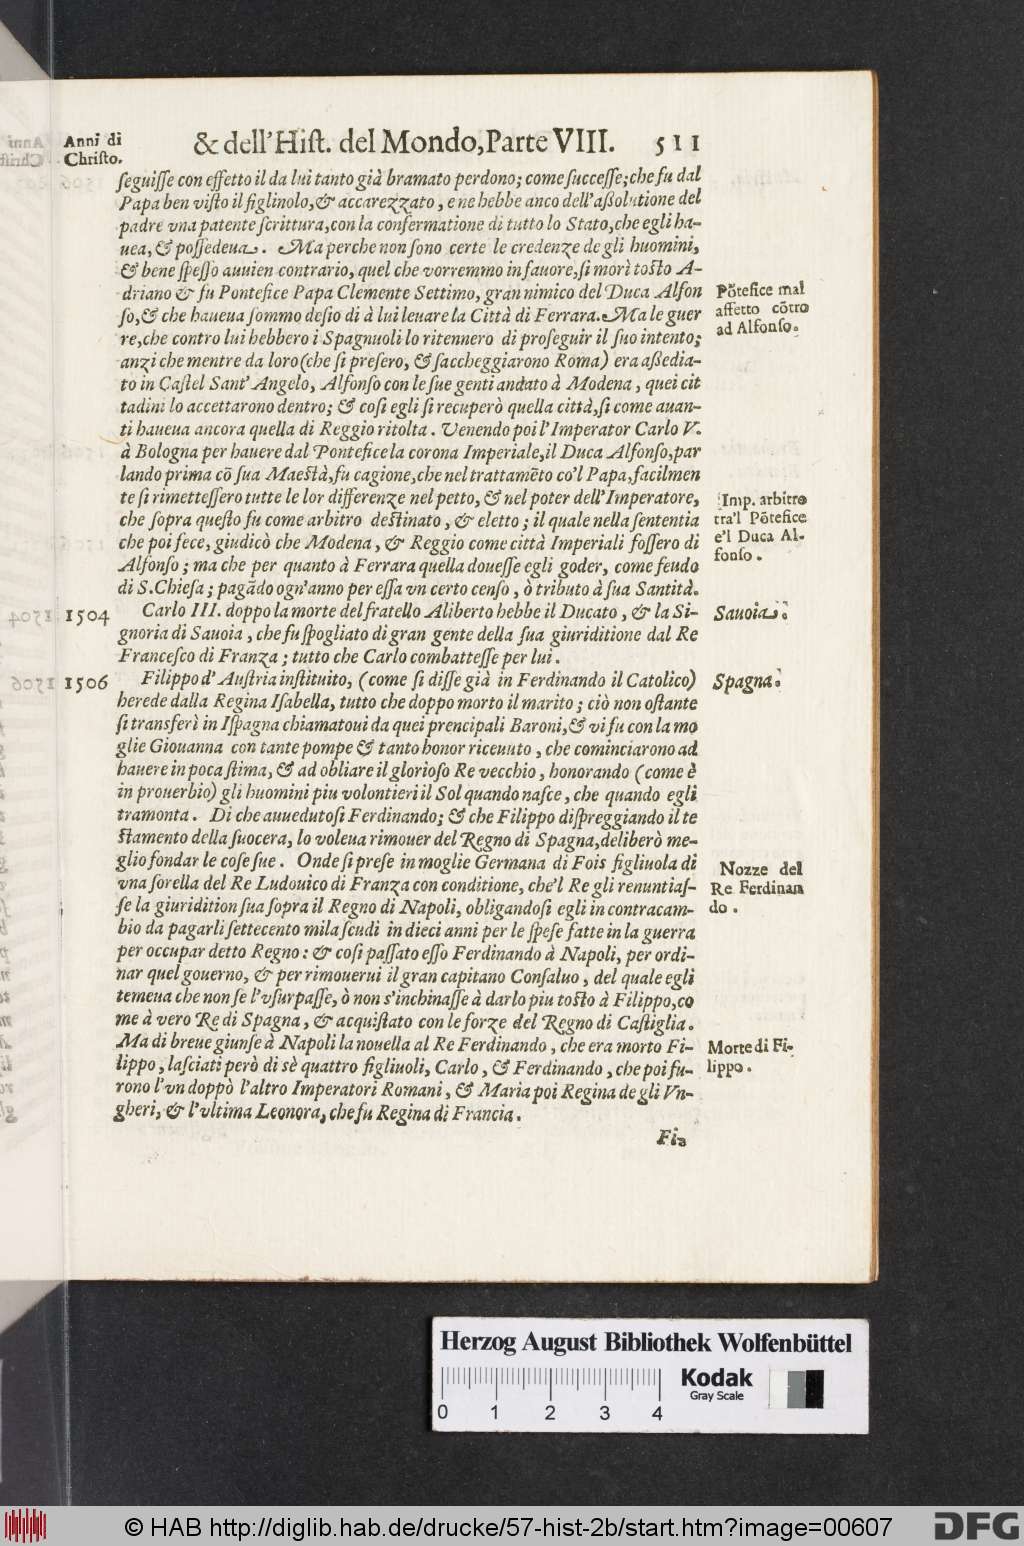 Anni di
Christo.
& dell'Hiſt. del Mondo, Parte VIII. 511
ſeguiſſe con effetto il da lui tanto già bramato perdono; come ſucceſſe; che fu dal
Papa ben viſto il figlinolo, & accarezzato, e ne hebbe anco dell'aſſolutione del
padre vna patente ſcrittura, con la confermatione di tutto lo Stato, che egli ha-
uea, & poſſedeua. Ma perche non ſono certe le credenze de gli huomini,
& bene ſpeſſo auuien contrario, quel che vorremmo in fauore, ſi morì toſto A-
driano & fu Pontefice Papa Clemente Settimo, gran nimico del Duca Alfon
ſo, & che haueua ſommo deſio di à lui leuare la Città di Ferrara. Ma le guer
re, che contro lui hebbero i Spagnuoli lo ritennero di proſeguir il ſuo intento;
anzi che mentre da loro (che ſi preſero, & ſaccheggiarono Roma) era aſſedia-
to in Caſtel Sant'Angelo, Alfonſo con le ſue genti andato à Modena, quei cit
tadini lo accettarono dentro; & coſi egli ſi recuperò quella città, ſi come auan-
ti haueua ancora quella di Reggio ritolta. Venendo poi l'Imperator Carlo V.
à Bologna per hauere dal Pontefice la corona Imperiale, il Duca Alfonſo, par
lando prima cõ ſua Maeſtà, fu cagione, che nel trattamẽto co'l Papa, facilmen
te ſi rimetteſſero tutte le lor differenze nel petto, & nel poter dell'Imperatore,
che ſopra queſto fu come arbitro deſtinato, & eletto; il quale nella ſententia
che poi fece, giudicò che Modena, & Reggio come città Imperiali foſſero di
Alfonſo; ma che per quanto à Ferrara quella doueſſe egli goder, come feudo
di S. Chieſa; pagãdo ogn'anno per eſſa vn certo cenſo, ò tributo à ſua Santità.
Põtefice mal
affetto cõtro
ad Alfonſo.
Imp. arbitro
tra'l Põtefice
e'l Duca Al-
fonſo.
1504 Carlo III. doppo la morte del fratello Aliberto hebbe il Ducato, & la Si-
gnoria di Sauoia, che fu ſpogliato di gran gente della ſua giuriditione dal Re
Franceſco di Franza; tutto che Carlo combatteſſe per lui.
Sauoia.
1506 Filippo d'Auſtria inſtituito, (come ſi diſſe già in Ferdinando il Catolico)
herede dalla Regina Iſabella, tutto che doppo morto il marito; ciò non oſtante
ſi transferì in Iſpagna chiamatoui da quei prencipali Baroni, & vi fu con la mo
glie Giouanna con tante pompe & tanto honor riceuuto, che cominciarono ad
hauere in poca ſtima, & ad obliare il glorioſo Re vecchio, honorando (come è
in prouerbio) gli huomini piu volontieri il Sol quando naſce, che quando egli
tramonta. Di che auuedutoſi Ferdinando; & che Filippo diſpreggiando il te
ſtamento della ſuocera, lo voleua rimouer del Regno di Spagna, deliberò me-
glio fondar le coſe ſue. Onde ſi preſe in moglie Germana di Fois figliuola di
vna ſorella del Re Ludouico di Franza con conditione, che'l Re gli renuntiaſ-
ſe la giuridition ſua ſopra il Regno di Napoli, obligandoſi egli in contracam-
bio da pagarli ſettecento mila ſcudi in dieci anni per le ſpeſe fatte in la guerra
per occupar detto Regno: & coſi paſſato eſſo Ferdinando à Napoli, per ordi-
nar quel gouerno, & per rimouerui il gran capitano Conſaluo, del quale egli
temeua che non ſe l'vſurpaſſe, ò non s'inchinaſſe à darlo piu toſto à Filippo, co
me à vero Re di Spagna, & acquiſtato con le forze del Regno di Caſtiglia.
Ma di breue giunſe à Napoli la nouella al Re Ferdinando, che era morto Fi-
lippo, laſciati però di sè quattro figliuoli, Carlo, & Ferdinando, che poi fu-
rono l'vn doppò l'altro Imperatori Romani, & Maria poi Regina de gli Vn-
gheri, & l'vltima Leonora, che fu Regina di Francia.
Spagna.
Nozze del
Re Ferdinan
do.
Morte di Fi-
lippo.
Fi-
Herzog August Bibliothek Wolfenbüttel
Kodak
Gray Scale
0 1 2 3 4
© HAB http://diglib.hab.de/drucke/57-hist-2b/start.htm?image=00607
DFG